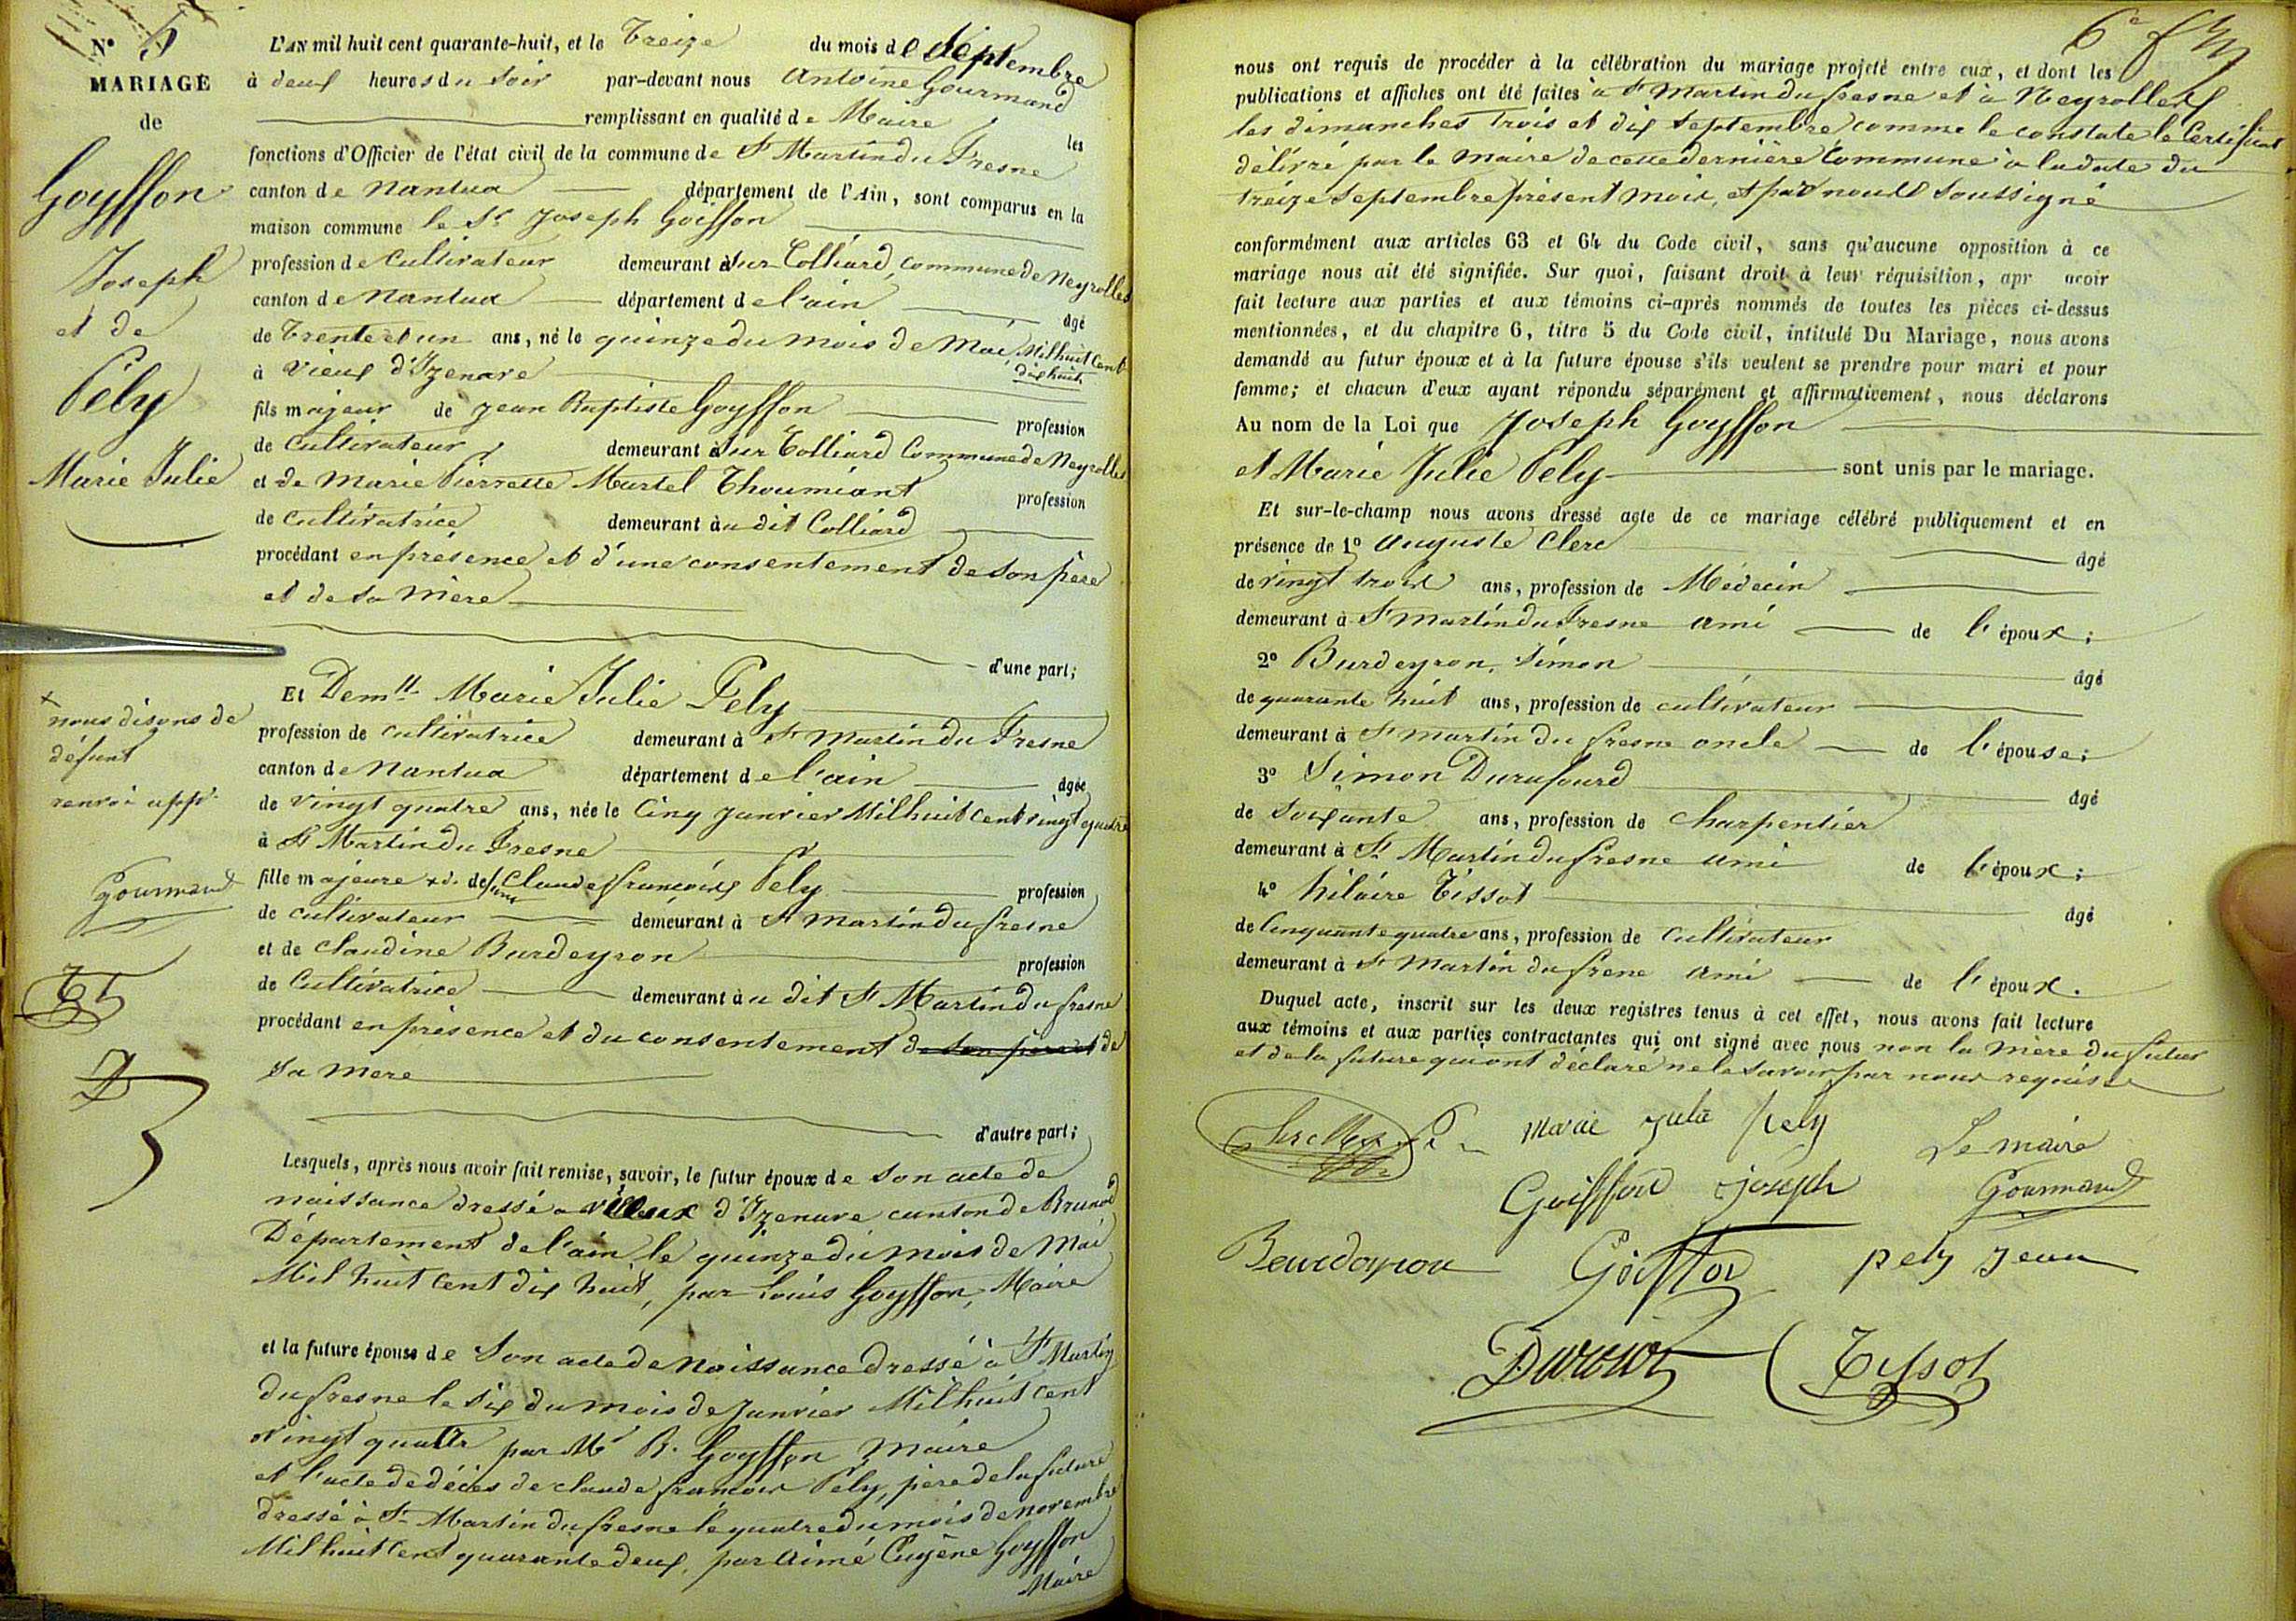 N° 5
MARIAGE
de
Goyffon
Joseph
et de
Pély
Marie Julie
L'AN mil huit cent quarante-huit, et le Treize du mois de Septembre
à deux heures du Soir par-devant nous Antoine Gourmand
remplissant en qualité de Maire les
fonctions d'Officier de l'état civil de la commune de St Martin du Fresne
canton de Nantua département de l'Ain, sont comparus en la
maison commune le Sr Joseph Goiffon
profession de Cultivateur demeurant à Sur Colliard, commune de Neyrolles
canton de Nantua département de l'ain âgé
de Trente et un ans, né le quinze du mois de Mai, Mil huit Cent
dix huit
à Vieux d'Izenave
fils majeur de Jean Baptiste Goyffon profession
de Cultivateur demeurant à Sur Colliard Commune de Neyrolles
et de Marie Pierrette Martel Thoumiant profession
de Cultivatrice demeurant àu dit Colliard
procédant en présence et d'une consentement de son père
et de sa mère
d'une part;
Et Demlle Marie Julie Pely
profession de cultivatrice demeurant à St Martin du Fresne
canton de Nantua département de l'ain âgée
de vingt quatre ans, née le Cinq Janvier Mil huit cent vingt quatre
à St Martin du Fresne
fille majeure x de défunt Claude françois Pely profession
de cultivateur demeurant à St Martin du fresne
et de Claudine Burdeyron profession
de Cultivatrice demeurant àu dit St Martin du fresne
procédant en présence et du consentement de son père et de
sa mère
d'autre part;
x
nous disons de
défunt
renvoi appr.
Gourmand
Lesquels, après nous avoir fait remise, savoir, le futur époux de son acte de
naissance dressé a vieux d'Izenave canton de Brunod
Département de l'ain, le quinze du mois de Mai
Mil huit Cent dix huit, par Louis Goyffon, Maire
et la future épouse de Son acte de Naissance dressé à St Martin
du fresne le six du mois de Janvier Mil huit cent
vingt quatre par Mr B. Goyffon Maire
et l'acte de décès de claude françois Pely, père de la future
dressé à St Martin du fresne le quatre du mois de novembre
Mil huit Cent quarante deux, par Aimé Eugène Goyffon
Maire
6e
nous ont requis de procéder à la célébration du mariage projeté entre eux, et dont les
publications et affiches ont été faites à St Martin du fresne et à Neyrolles
les dimanches Trois et dix Septembre comme le constate le Certificat
délivré par le Maire de cette dernière Commune à la date du
treize Septembre présent mois, et par nous Soussigné
conformément aux articles 63 et 64 du Code civil, sans qu'aucune opposition à ce
mariage nous ait été signifiée. Sur quoi, faisant droit à leur réquisition, apr avoir
fait lecture aux parties et aux témoins ci-après nommés de toutes les pièces ci-dessus
mentionnées, et du chapitre 6, titre 5 du Code civil, intitulé Du Mariage, nous avons
demandé au futur époux et à la future épouse s'ils veulent se prendre pour mari et pour
femme; et chacun d'eux ayant répondu séparément et affirmativement, nous déclarons
Au nom de la Loi que Joseph Goyffon
et Marie Julie Pely sont unis par le mariage.
Et sur-le-champ nous avons dressé acte de ce mariage célébré publiquement et en
présence de 1° Auguste Clerc âgé
de vingt trois ans, profession de Médecin
demeurant à St Martin du Fresne ami de l'époux;
2° Burdeyron, Simon âgé
de quarante huit ans, profession de cultivateur
demeurant à St martin du fresne oncle de l'épouse;
3° Simon Durafourd âgé
de Soixante ans, profession de Charpentier
demeurant à St Martin du fresne ami de l'époux;
4° hilaire Tissot âgé
de Cinquante quatre ans, profession de Cultivateur
demeurant à St Martin du frene ami de l'époux.
Duquel acte, inscrit sur les deux registres tenus à cet effet, nous avons fait lecture
aux témoins et aux parties contractantes qui ont signé avec nous non la mère du futur
et de la future qui ont déclaré ne le savoir par nous requis
Marie Julie Pely
Le maire
Goiffon Joseph
Gourmand
Burdeyron
Goiffon
pely Jean
Tissot